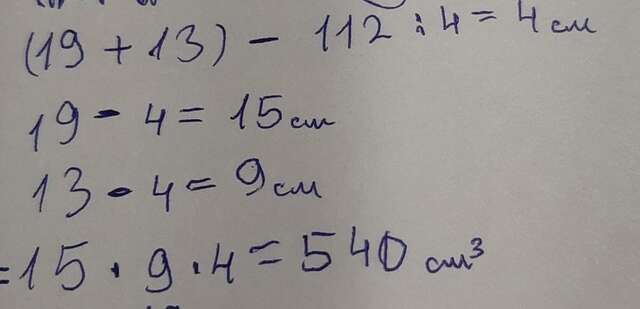 (19 + 13) - 112 : 4 = 4 см
19 - 4 = 15 см
13 - 4 = 9 см
= 15 · 9 · 4 = 540 см³